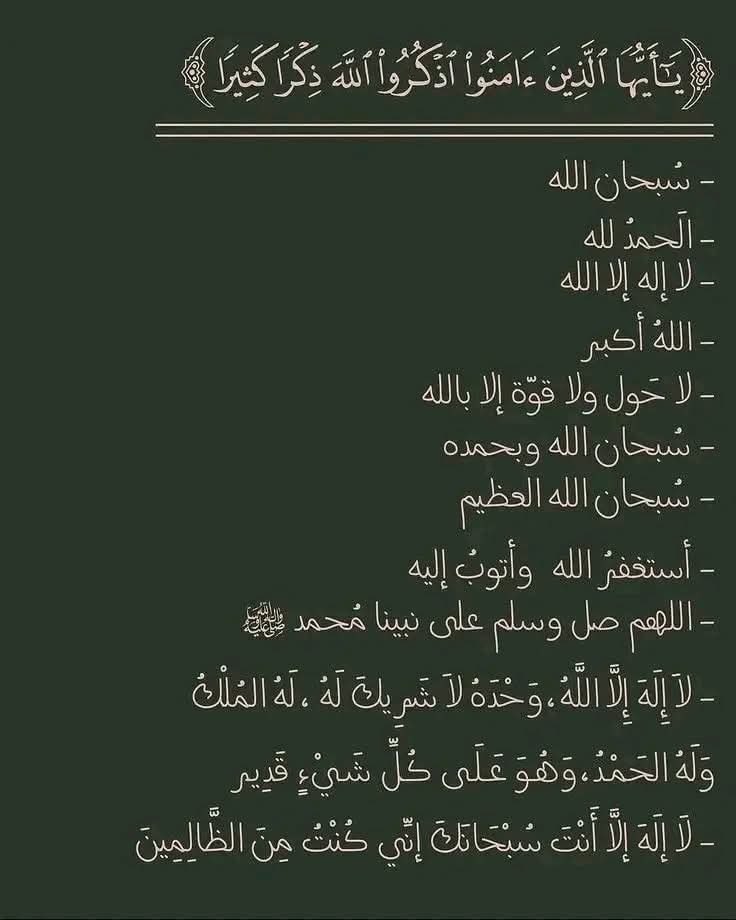 ﴿يَـٰٓأَيُّهَا ٱلَّذِينَ ءَامَنُوا۟ ٱذْكُرُوا۟ ٱللَّهَ ذِكْرًا كَثِيرًا﴾
- سُبحان الله
- الَحمدُ لله
- لا إله إلا الله
- اللهُ أكبر
- لا حَول ولا قوّة إلا بالله
- سُبحان الله وبحمده
- سُبحان الله العظيم
- أستغفرُ الله وأتوبُ إليه
- اللهم صل وسلم على نبينا مُحمد ﷺ
- لاَ إِلَهَ إِلَّا اللَّهُ، وَحْدَهُ لاَ شَرِيكَ لَهُ ، لَهُ المُلْكُ
وَلَهُ الحَمْدُ، وَهُوَ عَلَى كُلِّ شَيْءٍ قَدِير
- لَا إِلَهَ إِلَّا أَنْتَ سُبْحَانَكَ إِنِّي كُنْتُ مِنَ الظَّالِمِينَ